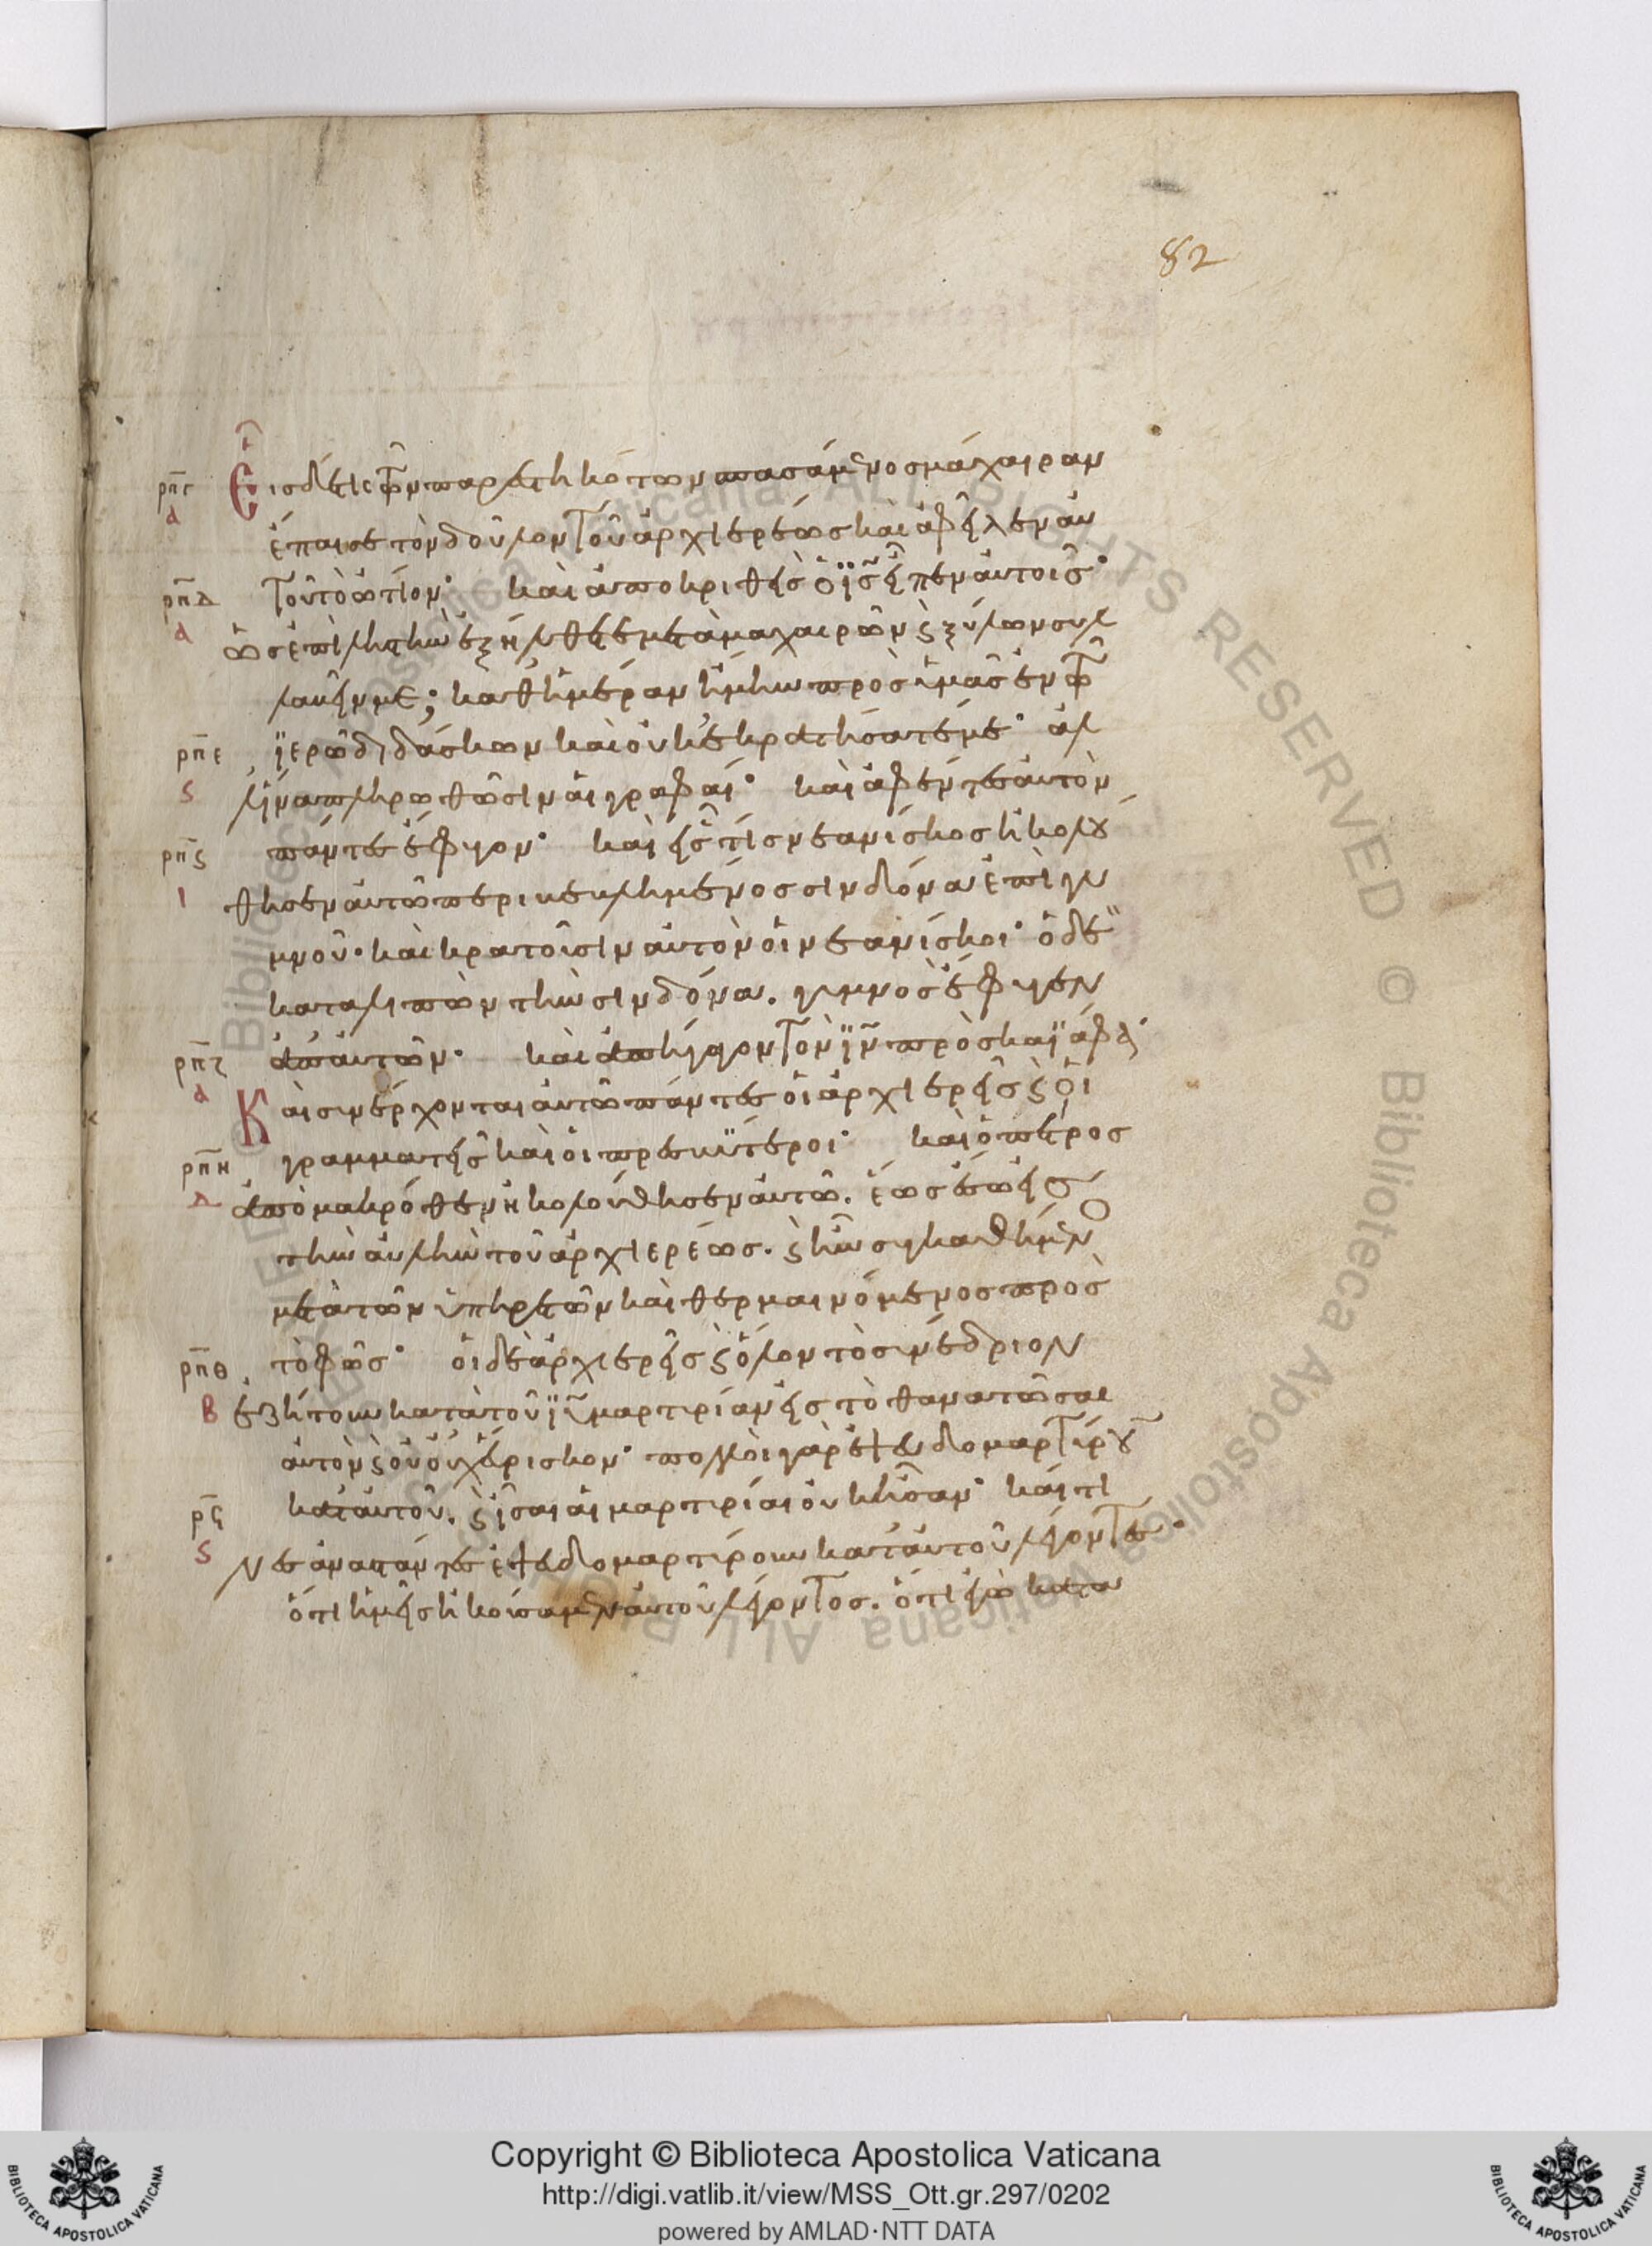 82
ρπγ Εἷς δέ τις τῶν παρεστηκότων σπασάμενος μάχαιραν
α ἔπαισε τὸν δοῦλον τοῦ ἀρχιερέως καὶ ἀφεῖλεν αὐ
ρπδ τοῦ τὸ ὠτίον· καὶ ἀποκριθεὶς ὁ ις εἶπεν αὐτοῖς·
α ὡς ἐπὶ ληστὴν ἐξήλθετε μετὰ μαχαιρῶν ϗ ξύλων συλ
λαβεῖν με; καθ ἡμέραν ἤμην πρὸς ὑμᾶς ἐν τῶ
ρπε ἱερῶ διδάσκων καὶ οὐκ ἐκρατήσατέ με· ἀλ
ς λ ἵνα πληρωθῶσιν αἱ γραφαί· καὶ ἀφέντες αὐτὸν
ρπς πάντες ἔφυγον· καὶ εἷς τις νεανίσκος ἠκολου
ι θησεν αὐτῶ περιβεβλημένος σινδόνα ἐπὶ γυ
μνοῦ· καὶ κρατοῦσιν αὐτὸν οἱ νεανίσκοι· ὁ δὲ
καταλιπὼν τὴν σινδόνα. γυμνὸς ἔφυγεν
ρπζ ἀπ αὐτῶν· καὶ ἀπήγαγον τὸν ιν πρὸς καϊάφα·
α Καὶ συνέρχονται αὐτῶ πάντες οἱ ἀρχιερεῖς ϗ οἱ
ρπη γραμματεῖς καὶ οἱ πρεσβύτεροι· καὶ ὁ πέτρος
δ ἀπὸ μακρόθεν ἠκολούθησεν αὐτῶ. ἕως ἔσω εἰς
τὴν αὐλὴν τοῦ ἀρχιερέως. ϗ ἦν συγκαθήμενος
μετὰ τῶν ὑπηρετῶν καὶ θερμαινόμενος πρὸς
ρπθ τὸ φῶς· οἱ δὲ ἀρχιερεῖς ϗ ὅλον τὸ συνέδριον
β ἐζήτουν κατὰ τοῦ ιυ μαρτυρίαν εἰς τὸ θανατῶσαι
αὐτὸν ϗ οὐχ εὕρισκον· πολλοὶ γὰρ ἐψευδομαρτύρουν
ρϟ κατ αὐτοῦ. ϗ ἶσαι αἱ μαρτυρίαι οὐκ ἦσαν· καί τι
ς νες ἀναστάντες ἐψευδομαρτύρουν κατ αὐτοῦ λέγοντες·
ὅτι ἡμεῖς ἠκούσαμεν αὐτοῦ λέγοντος. ὅτι ἐγὼ κατα
Copyright © Biblioteca Apostolica Vaticana
http://digi.vatlib.it/view/MSS_Ott.gr.297/0202
powered by AMLAD·NTT DATA
BIBLIOTECA APOSTOLICA VATICANA
BIBLIOTECA APOSTOLICA VATICANA